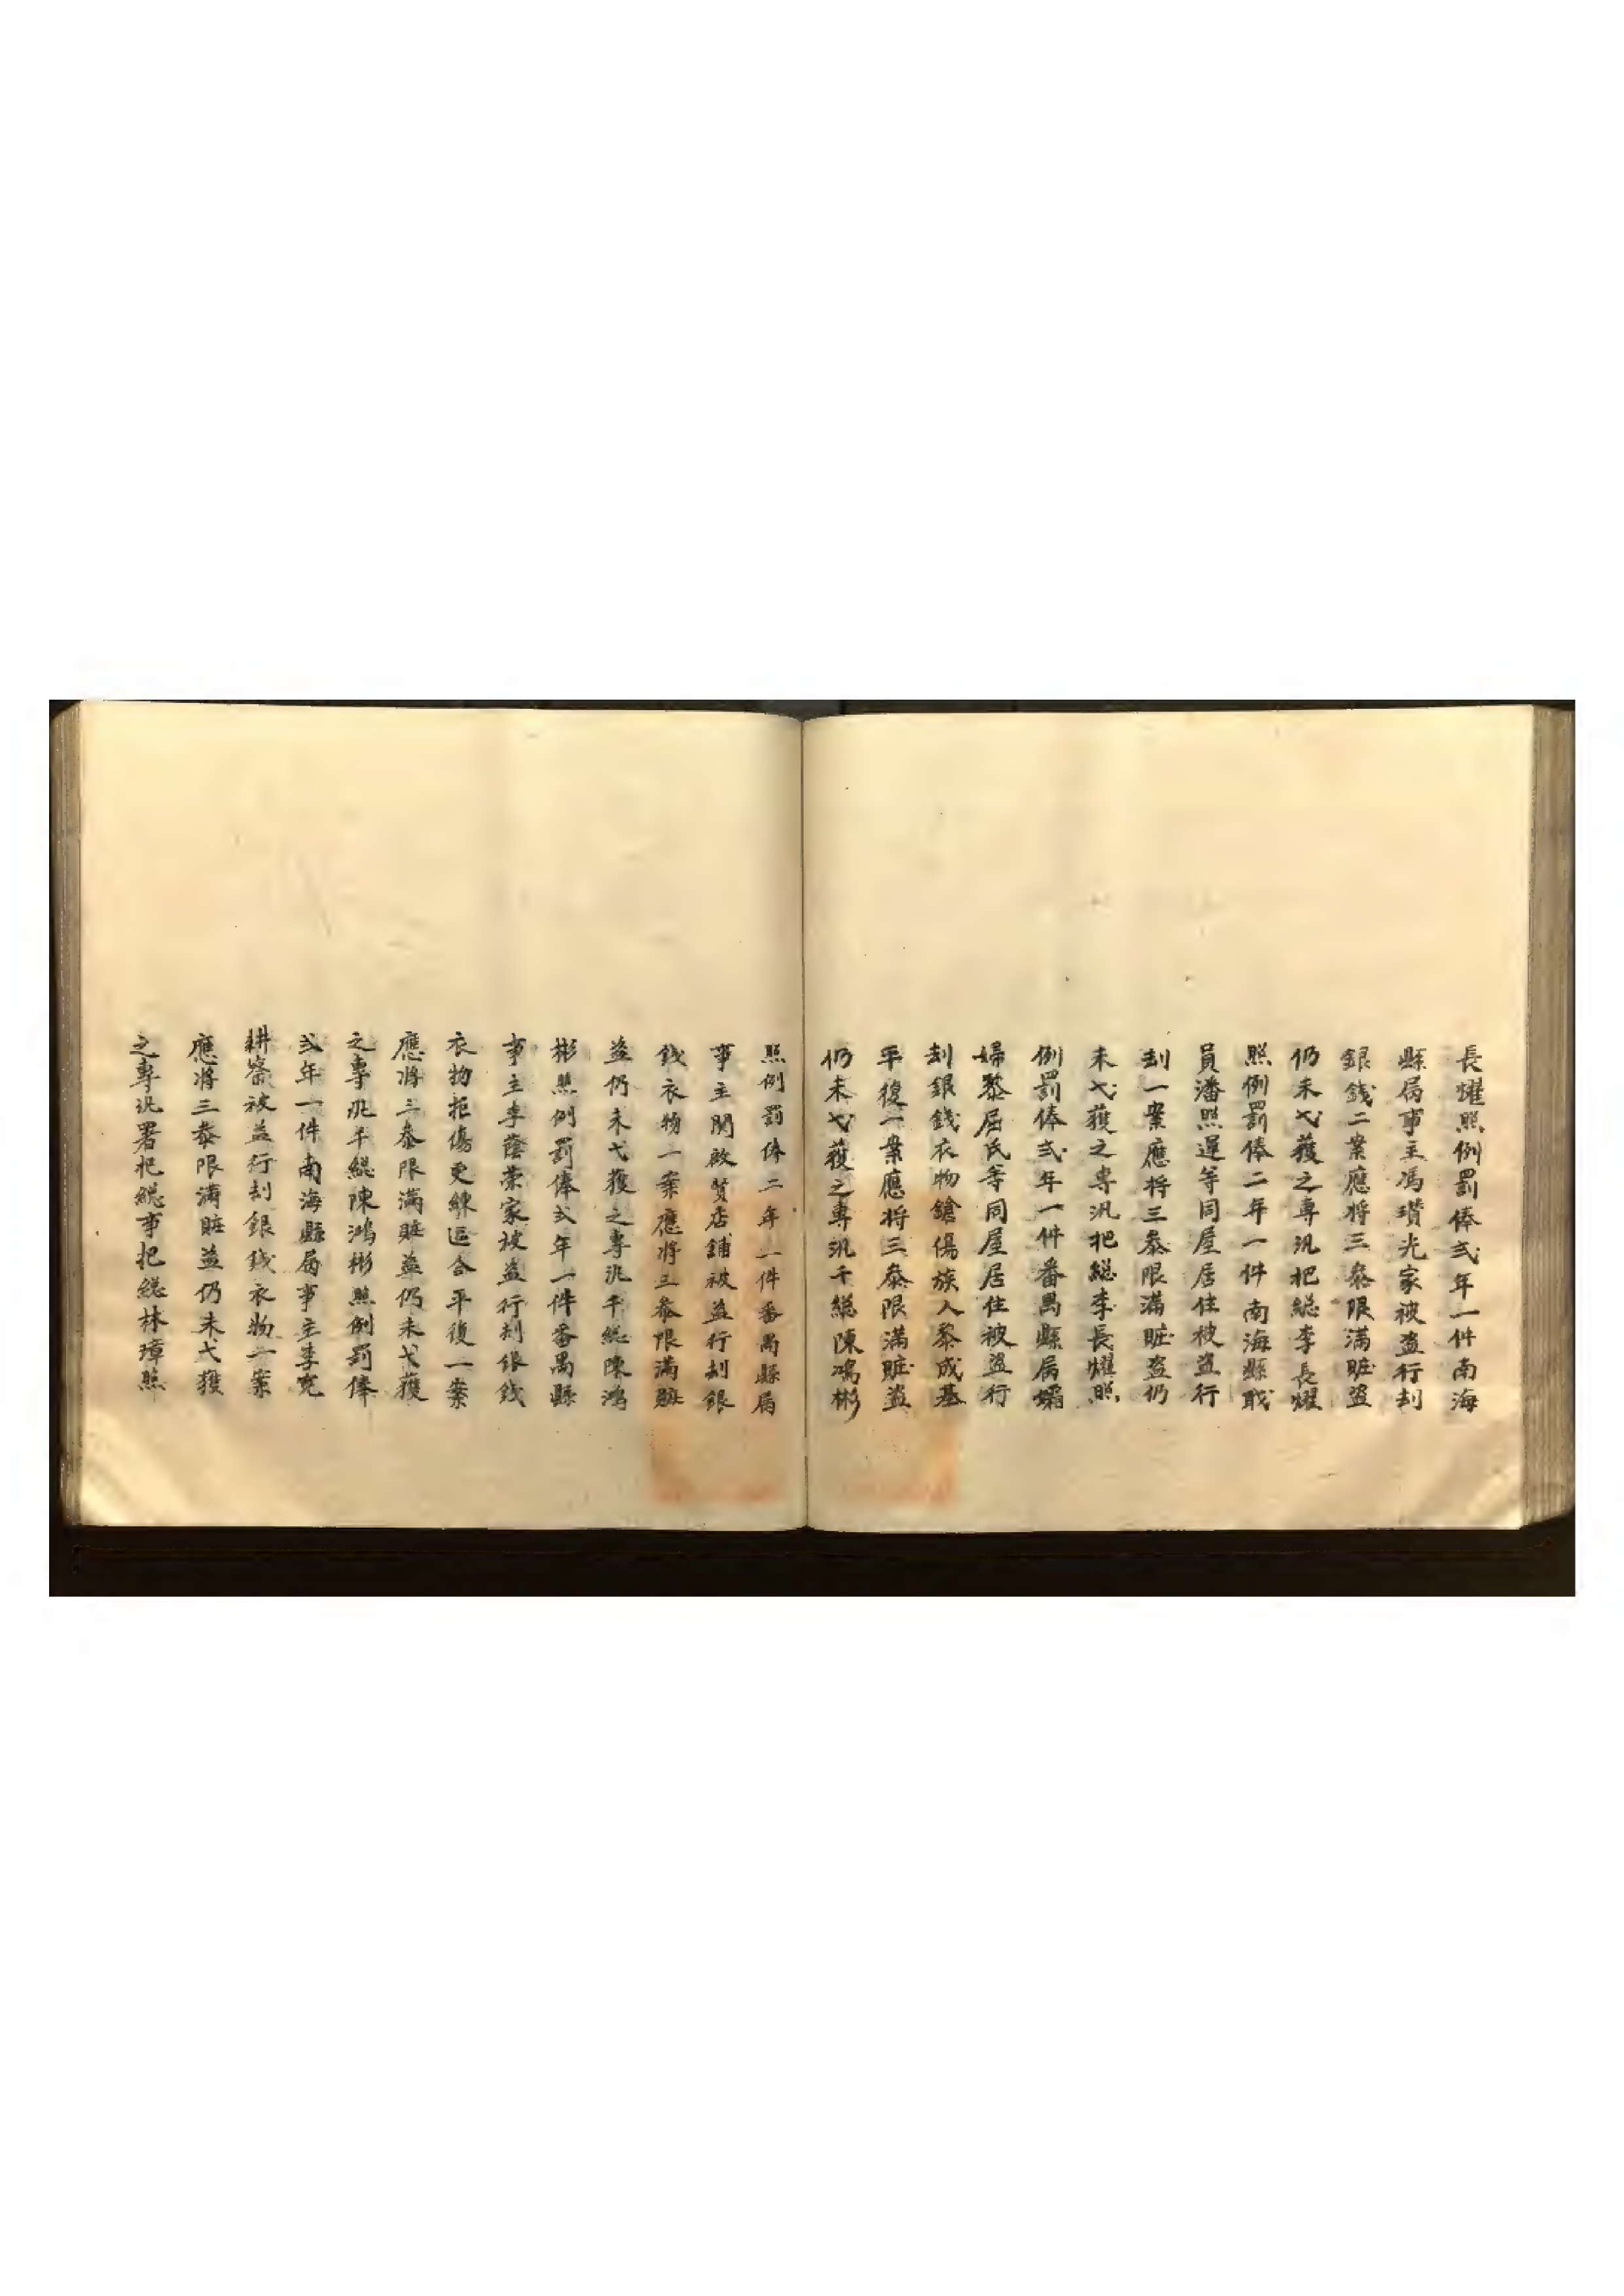 長耀照例罰俸弍年一件南海
縣屬事主馮瓚光家被盗行刦
銀錢二案應将三叅限滿賍盗
仍未弋獲之專汛把総李長耀
照例罰俸二年一件南海縣職
員潘照遲等同屋居住被盗行
刦一案應将三叅限滿賍盗仍
未弋獲之専汛把総李長耀照
例罰俸弍年一件番禺縣屬孀
婦黎屈氏等同屋居住被盗行
刦銀錢衣物鎗傷族人黎成基
平復一案應将三叅限滿賍盗
仍未弋獲之專汛千総陳鴻彬
照例罰俸二年一件番禺縣屬
事主関啟賢店鋪被盗行刦銀
錢衣物一案應將三叅限滿賍
盗仍未弋獲之專汛千総陳鴻
彬照例罰俸弍年一件番禺縣
事主李蔭棠家被盗行刦銀錢
衣物拒傷更練區合平復一案
應將三叅限滿賍盗仍未弋獲
之專汛千総陳鴻彬照例罰俸
弍年一件南海縣屬事主李寛
耕寮被盗行刦銀錢衣物一案
應將三叅限滿賍盗仍未弋獲
之專汛署把総事把総林璋照